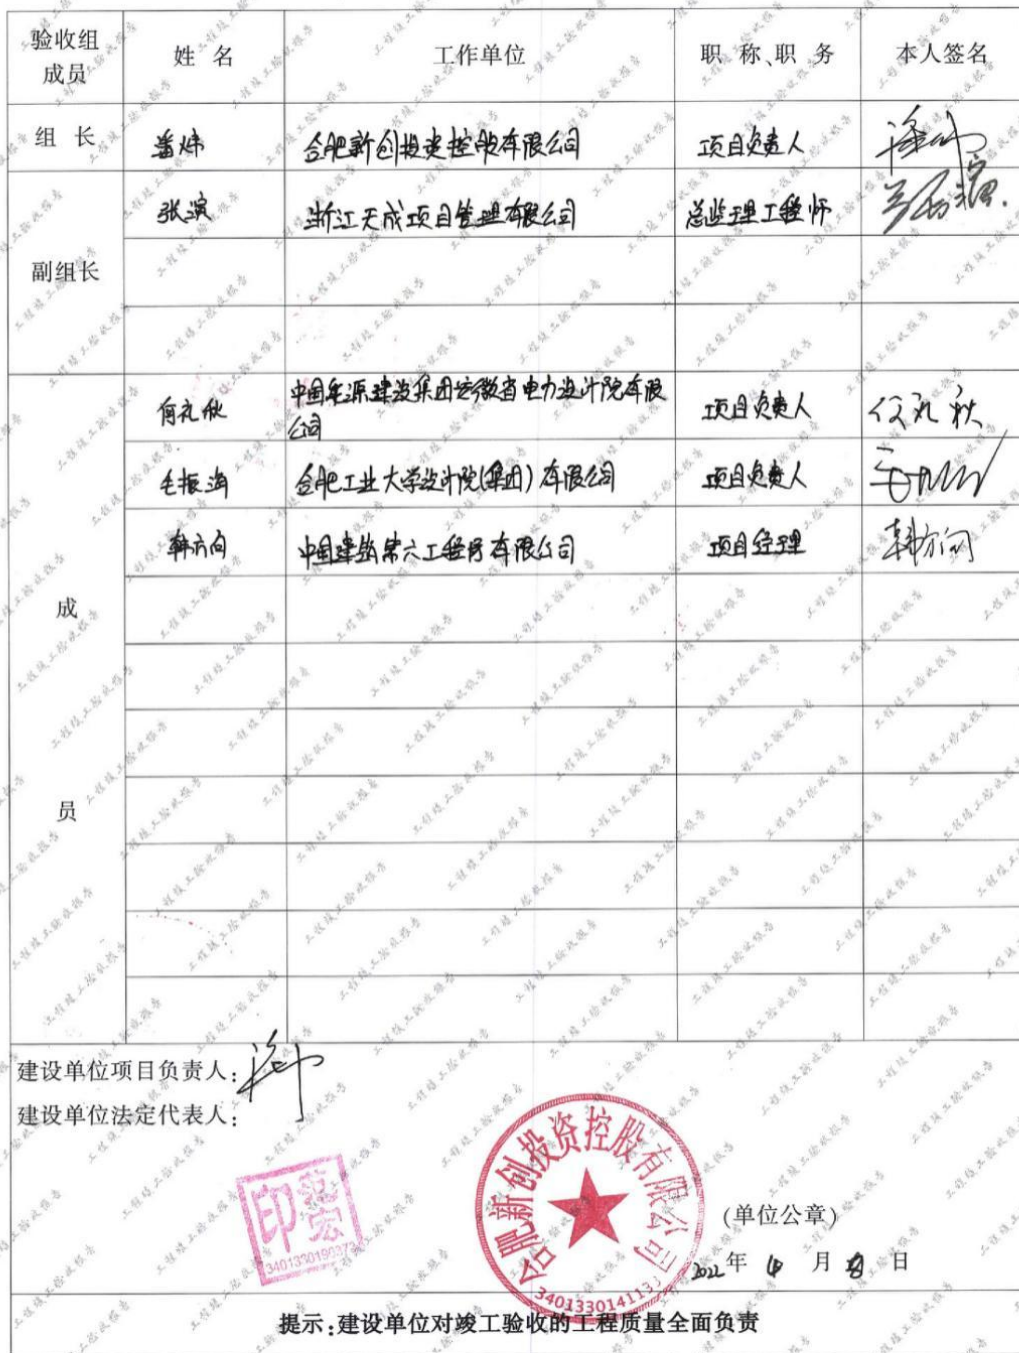 验收组成员 姓 名 工作单位 职 称、职 务 本人签名
组 长 潘炜 合肥新创投资控股有限公司 项目负责人
副组长 张滨 浙江天成项目管理有限公司 总监理工程师
成员 何礼秋 中国能源建设集团安徽省电力设计院有限公司 项目负责人 何礼秋
毛振海 合肥工业大学设计院(集团)有限公司 项目负责人
韩方向 中国建筑第六工程局有限公司 项目经理 韩方向
建设单位项目负责人:
建设单位法定代表人:
合肥新创投资控股有限公司
印
3401330190373
(单位公章)
2022年 月 日
提示:建设单位对竣工验收的工程质量全面负责
工程竣工验收报告